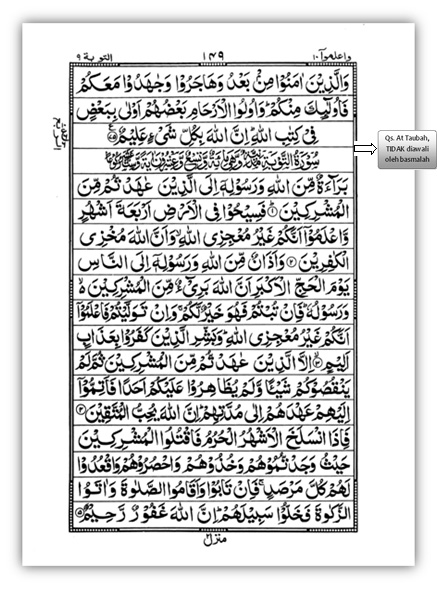 واعلموٓا ١٠ ١٤٩ التوبة ٩
وَالَّذِيْنَ اٰمَنُوْا مِنْۢ بَعْدُ وَهَاجَرُوْا وَجٰهَدُوْا مَعَكُمْ
فَاُولٰٓئِكَ مِنْكُمْ ؕ وَاُولُوا الْاَرْحَامِ بَعْضُهُمْ اَوْلٰى بِبَعْضٍ
فِىْ كِتٰبِ اللّٰهِ ؕ اِنَّ اللّٰهَ بِكُلِّ شَىْءٍ عَلِيْمٌ ۝٧٥
سُوْرَةُ التَّوْبَةِ
بَرَآءَةٌ مِّنَ اللّٰهِ وَرَسُوْلِهٖۤ اِلَى الَّذِيْنَ عٰهَدْتُّمْ مِّنَ
الْمُشْرِكِيْنَ ۝١ فَسِيْحُوْا فِى الْاَرْضِ اَرْبَعَةَ اَشْهُرٍ
وَّاعْلَمُوْۤا اَنَّكُمْ غَيْرُ مُعْجِزِى اللّٰهِ ۙ وَاَنَّ اللّٰهَ مُخْزِى
الْكٰفِرِيْنَ ۝٢ وَاَذَانٌ مِّنَ اللّٰهِ وَرَسُوْلِهٖۤ اِلَى النَّاسِ
يَوْمَ الْحَجِّ الْاَكْبَرِ اَنَّ اللّٰهَ بَرِىْٓءٌ مِّنَ الْمُشْرِكِيْنَ ۙ
وَرَسُوْلُهٗ ؕ فَاِنْ تُبْتُمْ فَهُوَ خَيْرٌ لَّكُمْ ۚ وَاِنْ تَوَلَّيْتُمْ فَاعْلَمُوْۤا
اَنَّكُمْ غَيْرُ مُعْجِزِى اللّٰهِ ؕ وَبَشِّرِ الَّذِيْنَ كَفَرُوْا بِعَذَابٍ
اَلِيْمٍ ۝٣ اِلَّا الَّذِيْنَ عٰهَدْتُّمْ مِّنَ الْمُشْرِكِيْنَ ثُمَّ لَمْ
يَنْقُصُوْكُمْ شَيْـًٔا وَّلَمْ يُظَاهِرُوْا عَلَيْكُمْ اَحَدًا فَاَتِمُّوْۤا
اِلَيْهِمْ عَهْدَهُمْ اِلٰى مُدَّتِهِمْ ؕ اِنَّ اللّٰهَ يُحِبُّ الْمُتَّقِيْنَ ۝٤
فَاِذَا انْسَلَخَ الْاَشْهُرُ الْحُرُمُ فَاقْتُلُوا الْمُشْرِكِيْنَ
حَيْثُ وَجَدْتُّمُوْهُمْ وَخُذُوْهُمْ وَاحْصُرُوْهُمْ وَاقْعُدُوْا
لَهُمْ كُلَّ مَرْصَدٍ ۚ فَاِنْ تَابُوْا وَاَقَامُوا الصَّلٰوةَ وَاٰتَوُا
الزَّكٰوةَ فَخَلُّوْا سَبِيْلَهُمْ ؕ اِنَّ اللّٰهَ غَفُوْرٌ رَّحِيْمٌ ۝٥
منزل ٢
Qs. At Taubah,
TIDAK diawali
oleh basmalah